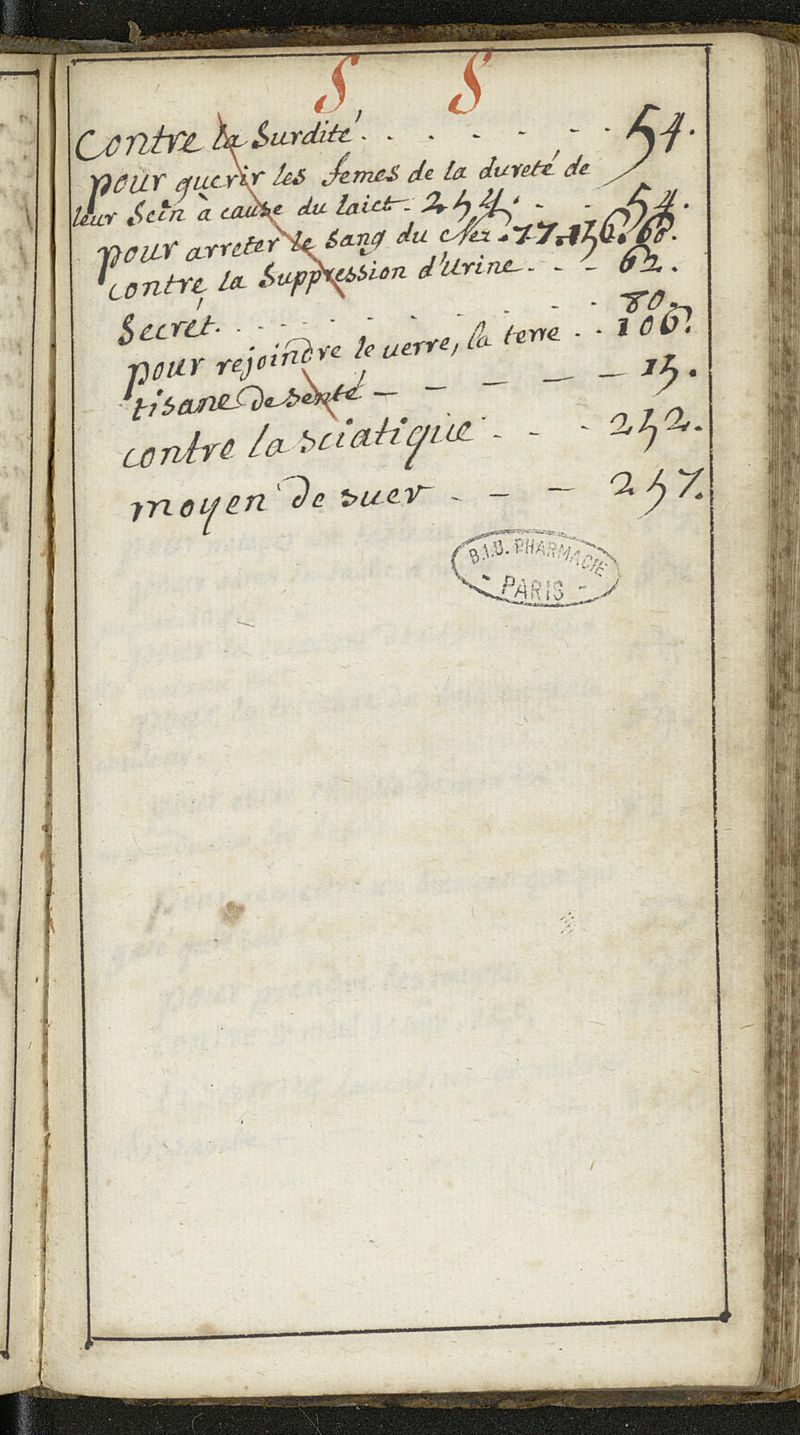 S S
Contre la Surdité . . . . . . . 54.
pour guerir les femes de la dureté de
leur Sein à cause du laict - 254. - - 54.
pour arreter le sang du Nez . 77. 156. 60.
contre la Suppression d'Urine - - - 62.
Secret. - - - - - - - - 80.
pour rejoindre le verre, la terre - - 106.
tisane de senté - - - - - 15.
contre la sciatique - - - 252.
moyen de suer - - - 257.
B.I.U. PHARMACIE
- PARIS -